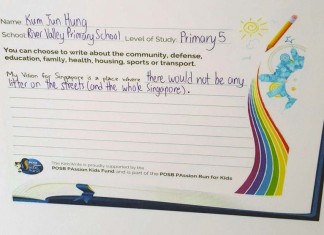 Name: Kum Jun Hung
School: River Valley Primary School Level of Study: Primary 5
You can choose to write about the community, defense,
education, family, health, housing, sports or transport.
My Vision for Singapore is a place where there would not be any
litter on the streets (and the whole Singapore).
This Kontribute is proudly supported by the
POSB PAssion Kids Fund and is part of the POSB PAssion Run for Kids